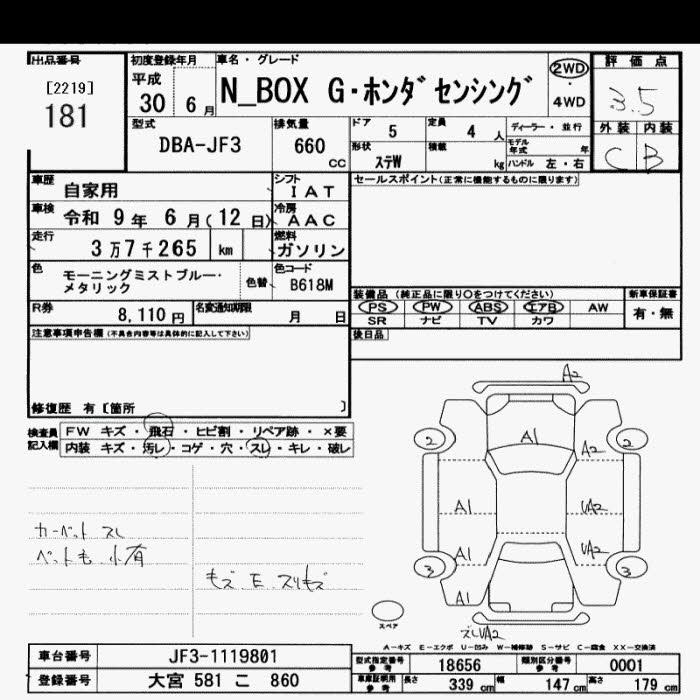 出品番号
[2219]
181
初度登録年月
平成
30 6 月
車名・グレード
N_BOX G・ホンダセンシング
2WD
・
4WD
評価点
3.5
外装 内装
C B
型式
DBA-JF3
排気量
660
cc
ドア
5
定員
4 人
ディーラー・並行
形状
ステW
積載
kg
モデル
年式 年
ハンドル 左・右
車歴
自家用
シフト
IAT
セールスポイント(正常に機能するものに限ります)
車検
令和 9 年 6 月(12 日)
冷房
AAC
走行
3万7千265 km
燃料
ガソリン
色
モーニングミストブルー・
メタリック
色替
色コード
B618M
装備品 (純正品に限り○をつけてください)
新車保証書
PS PW ABS エアB AW
有・無
SR ナビ TV カワ
R券
8,110 円
名変通知期限
月 日
後日品
注意事項申告欄(不具合内容等は具体的に記入して下さい)
修復歴 有〔箇所 〕
検査員
記入欄
FW キズ・飛石・ヒビ割・リペア跡・×要
内装 キズ・汚レ・コゲ・穴・スレ・キレ・破レ
カーペット スレ
ペット毛 小有
モズ E スリキズ
A2
2
A1
2
A2
A1
UA2
A1
UA2
3
3
A1
スペア
ズレUA2
A-キズ E-エクボ U-凹み W-補修跡 S-サビ C-腐食 XX-交換済
車台番号
JF3-1119801
登録番号
大宮 581 こ 860
型式指定番号
参考
18656
類別区分番号
参考
0001
車庫証明用
参考
長さ
339 cm
幅
147 cm
高さ
179 cm